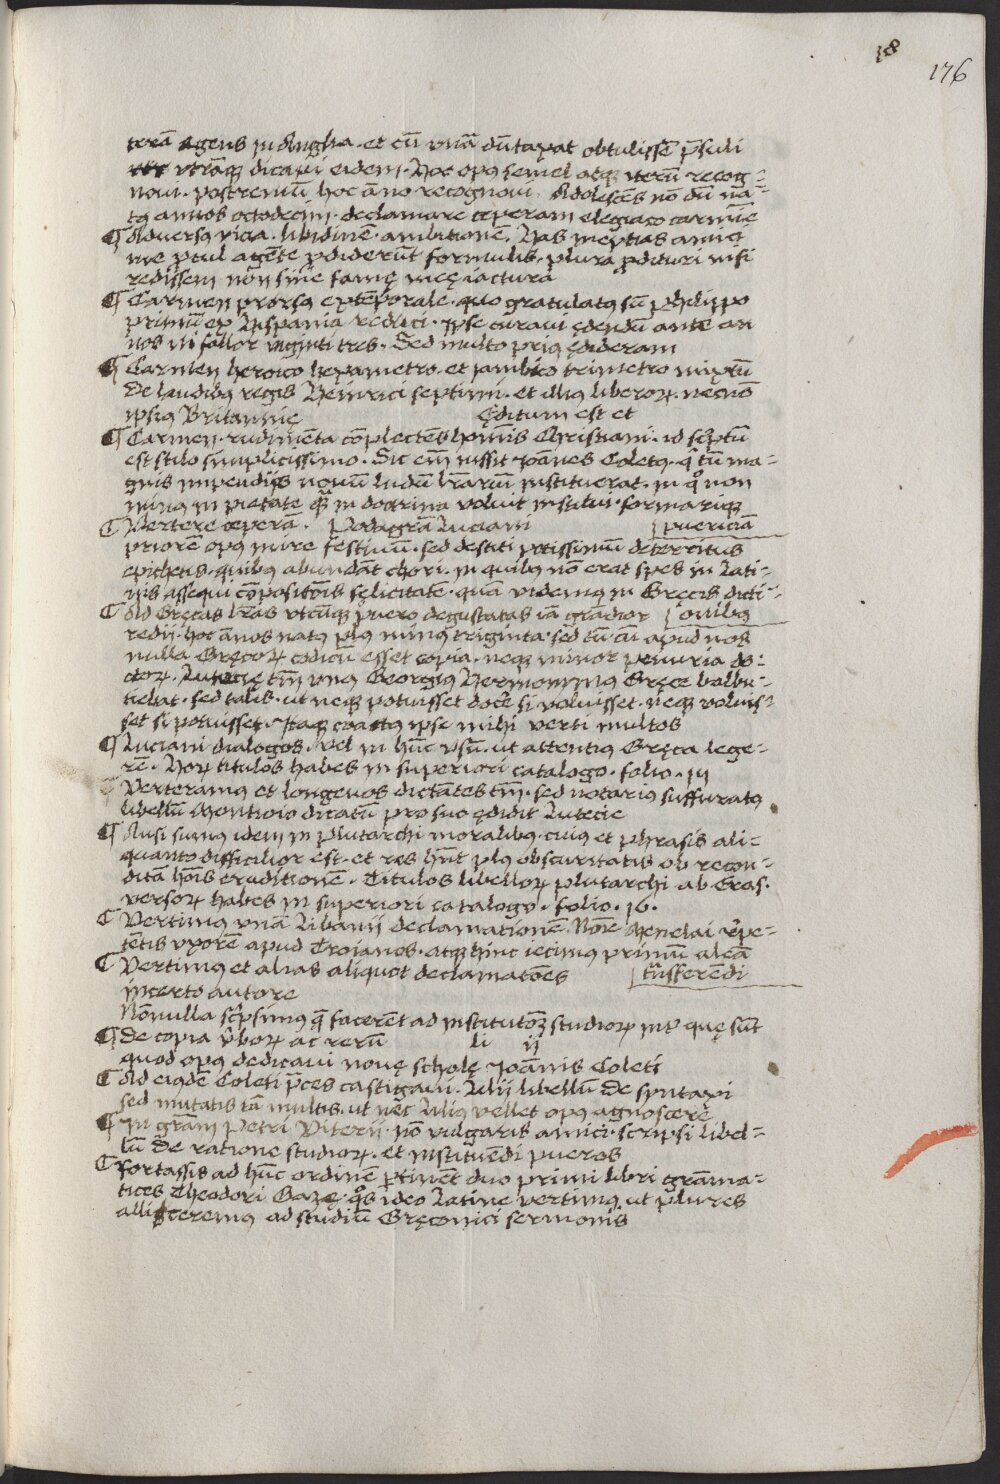 18
176
terā agens in Anglia. et cū vnā dūtaxat obtulissē p̄suli
vtrāq; dicavi eidem. Hoc opus semel atq; iterū recog=
novi. postremū hoc āno recognovi. Adolescēs nō dū na=
tꝰ annos octodecim. declamare ceperam elegiaco carmīe
¶ Adversꝰ vicia. libidinē. ambitionē. Has ineptias amici
me ꝓcul agēte ꝓdiderūt formulis. plura ꝓdituri nisi
redissem non sine famę męę iactura
¶ Carmen prorsꝰ extēporale. quo gratulatꝰ sū philippo
primū ex Hispania reduci. Ipse curavi ędendū ante an
nos ni fallor viginti tres. Sed multo priꝰ ędideram
¶ Carmen heroico hexametro. et iambico trimetro mixtū
De laudibꝰ regis Heinrici septimi. et illiꝰ liberoꝝ. necnō
ipsiꝰ Britannie Ęditum est et
¶ Carmen. rudimēta cōplectēs hominis Christiani. id scriptū
est stilo simplicissimo. Sic em̄ iussit Joānes Coletꝰ. q̇ tū ma=
gnis impendiis novū ludū lr̄ariū instituerat. in q̊ non
minꝰ in pietate q̄ in doctrina voluit institui. formariq;
¶ Vertere ceperā. Podagrā Luciani puericiā
priorē opꝰ mire festivū. sed destiti potissimū deterritus
epithetis. quibꝰ abundāt chori. in quibꝰ nō erat spes in Lati=
nis assequi cōpositōis fęlicitatē. quā videmꝰ in Gręcis dicti=
¶ Ad Gręcas lr̄as vtcūq; puero degustatas iā grādior onibꝰ
redii. hoc annos natꝰ plꝰ minꝰ triginta. sed tū cū apud nos
nulla Gręcoꝝ codicū esset copia. neq; minor penuria do=
ctoꝝ. Lutecię tm̄ vnꝰ Georgiꝰ Hermonymꝰ Gręce balbu=
tiebat. sed talis. ut neq; potuisset docere si voluisset. neq; voluis=
set si potuisset. Itaq; coactꝰ ipse mihi verti multos
¶ Luciani dialogos. vel in hūc vsū. ut attentiꝰ Gręca lege=
rē. Hoꝝ titulos habes in superiori catalogo. folio. 14
¶ Verteramꝰ et longevos dictātes tm̄. sed notariꝰ suffuratꝰ
libellū Montioio dicatū pro suo ędidit Lutecie
¶ Ausi sumꝰ idem in Plutarchi moralibꝰ. cuiꝰ et phrasis ali=
quanto difficilior est. et res hn̄t plꝰ obscuritatis ob recon=
ditā hoīs eruditionē. Titulos libelloꝝ plutarchi. ab Eras.
versoꝝ habes in superiori catalogo. folio. 16.
¶ Vertimꝰ vnā Libanii declamationē Noīe Menelai repe=
tētis vxorē apud Troianos. atq; hinc iecimꝰ primū aleā
¶ Vertimꝰ et alias aliquot declamatōes trāsferēdi
incerto autore
Nōnulla scripsimꝰ q̄ facerēt ad institutōꝫ studioꝝ inter quę sūt
¶ De copia verboꝝ ac rerū li ii
quod opus dedicavi novę scholę Joānnis Coleti
¶ Ad eiꝰdē Coleti p̄ces castigavi. Lilii libellū De syntaxi
sed mutatis tā multis. ut nec Liliꝰ vellet opꝰ agnoscere
¶ In gratiam Petri Viterii. nō vulgaris amici. scripsi libel=
lū De ratione studioꝝ. et instituēdi pueros
¶ Fortassis ad hūc ordinē ꝑtinēt duo primi libri grāma=
tices Theodori Gazę. q̊s ideo Latine vertimꝰ. ut plures
alliceremꝰ ad studiū Gręconici sermonis